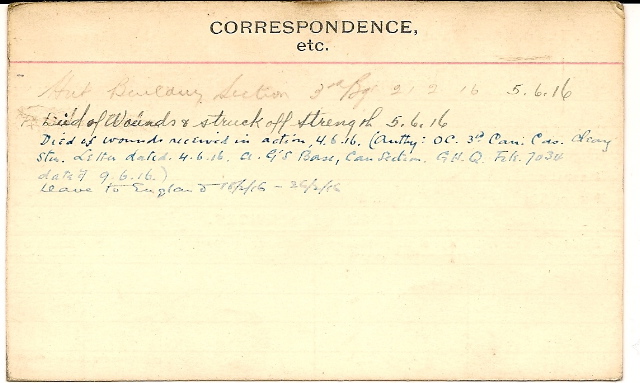 CORRESPONDENCE,
etc.
Hut Building Section 3rd Bg 21 2 16 5.6.16
Died of Wounds & struck off strength 5.6.16
Died of wounds received in action, 4.6.16. (Authy: OC. 3rd Can. Cas. Clearg
Stn. Letter dated. 4.6.16. A.G's Base, Can Section. G.H.Q. File. 7034
dated 9.6.16.)
Leave to England 18/2/16 - 26/2/16